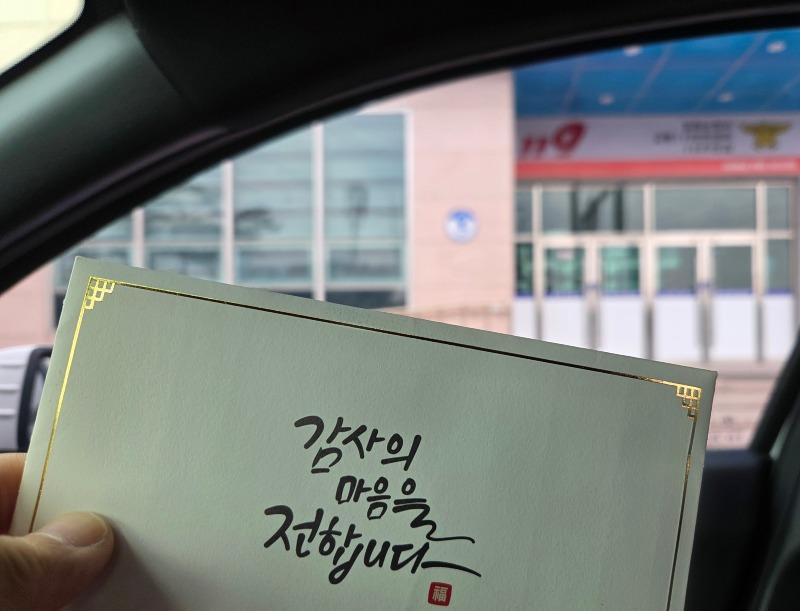 119
감사의
마음을
전합니다
福